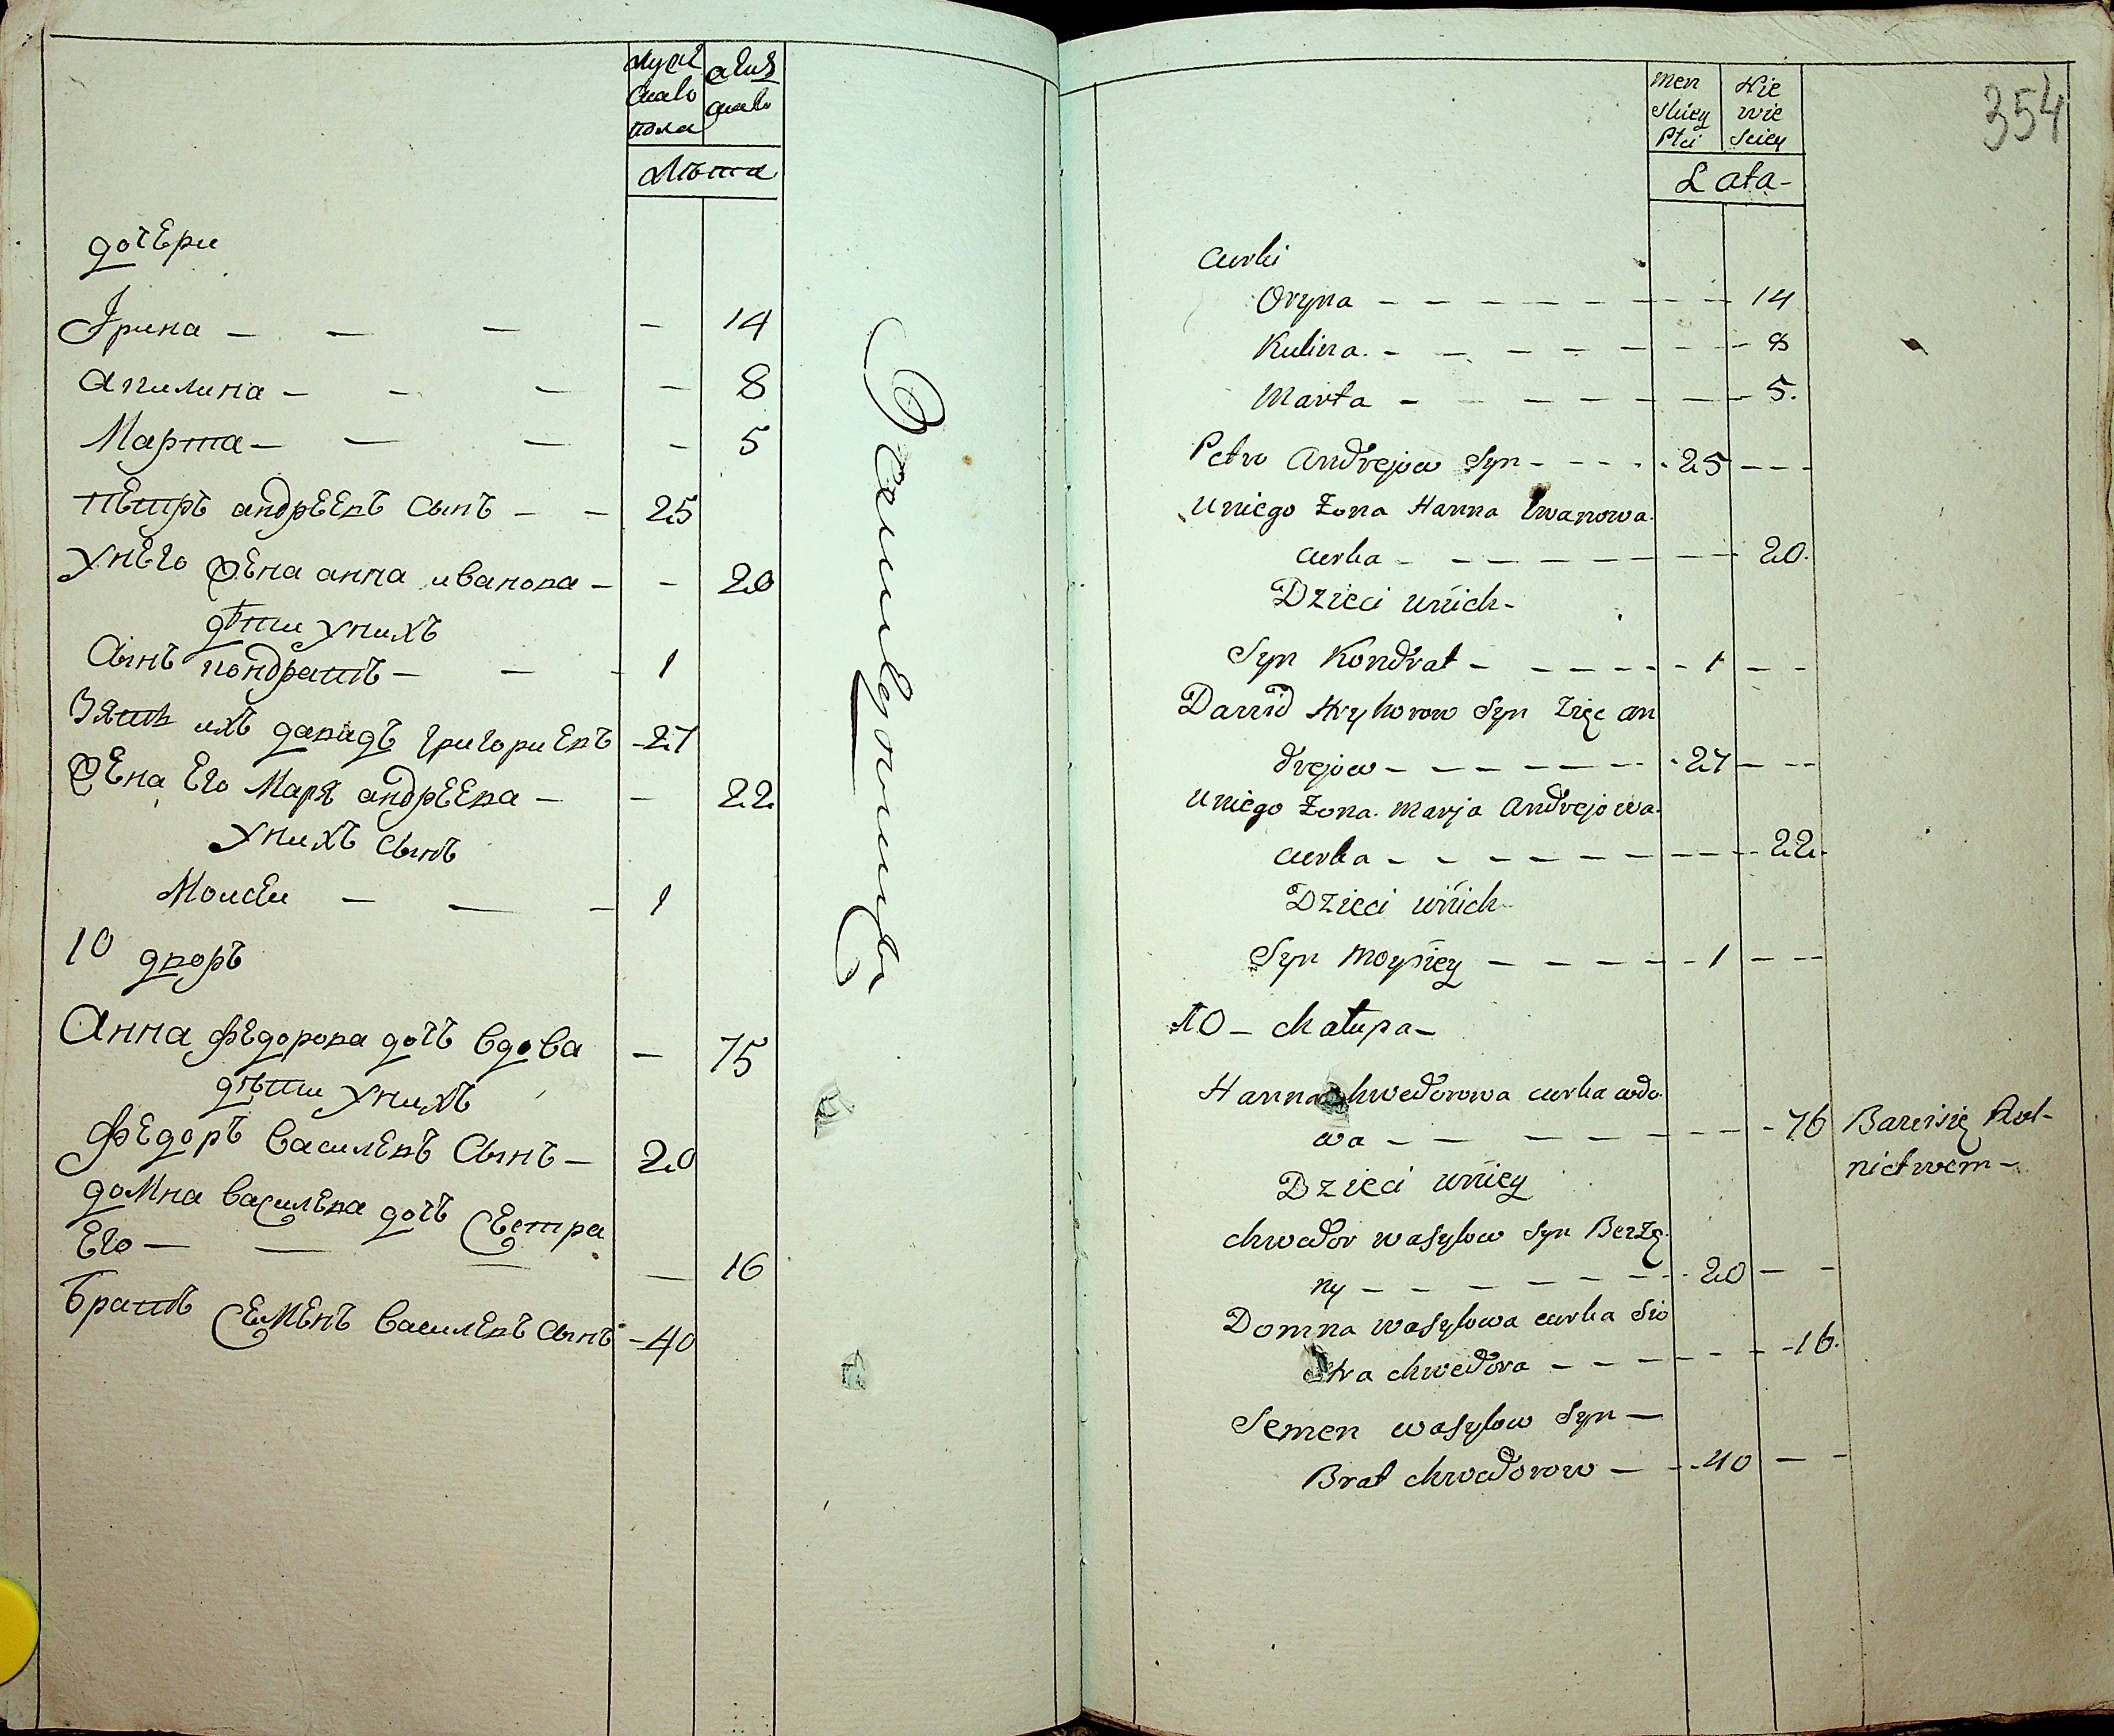 мужескаго пола
женскаго
Лѣта
дочери
Ірина — — — — 14
Акилина — — — — 8
Марта — — — — 5
Петръ андреевъ сынъ — — 25
унего жена анна иванова — — 20
дѣти унихъ
Сынъ кондратъ — — — 1
Зять ихъ давидъ григориевъ — 27
жена его Маря андреева — — 22
унихъ сынъ
Моисеи — — — 1
10 дворъ
Анна федорова дочь вдова — 75
дѣти унихъ
федоръ василевъ Сынъ — 20
домна василева дочь сестра
Его — — — 16
братъ семенъ василевъ сынъ — 40
Menskiey Płci
Niewiesciey
Lata —
354
curki
Oryna — — — — — — — — 14
Kulina — — — — — — — — 8
Marta — — — — — — — — 5.
Petro Andrejow Syn — — — — 25 — — —
Uniego Żona Hanna Iwanowa
curka — — — — — — — — 20.
Dzieci unich —
Syn Kondrat — — — — — — 1 — —
Dawid Hryhorow Syn Zięc An
drejow — — — — — — — 27 — — —
Uniego Żona Marja Andrejowa
curka — — — — — — — — 22.
Dzieci unich
Syn Moysiey — — — — — — 1 — —
10 — chałupa —
Hanna chwedorowa curka wdo
wa — — — — — — — — 76 Bawisię Rol-
nictwem —
Dzieci uniey
chwedor wasylow Syn Berże
ny — — — — — — — 20 — —
Domna wasylowa curka Sio
stra chwedora — — — — — — — 16.
Semen wasylow Syn —
Brat chwedorow — — — 40 — —